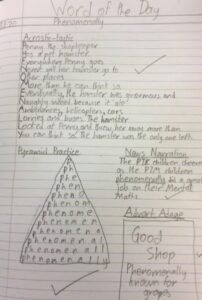 Word of the Day
Phenomenally
Acrostic-tastic
Penny the shopkeeper
Has a pet hamster
Everywhere Penny goes
Never will her hamster go to
Other places
More than he can think so.
Eventually, the hamster was enormous and
Naughty indeed because it ate:
Ambulances, helicopters, cars
Lorries and buses. The hamster
Looked at Penny and threw her more than
You can think so the hamster was the only one left.
Pyramid Practice
p
ph
phe
phen
pheno
phenom
phenome
phenomen
phenomena
phenomenal
phenomenall
phenomenally
News Narration
The children
as the P2M children
phenomenally did a great
job on their Mental
Maths.
Advert Adage
Good
Shop
Phenomenally
known for
grapes